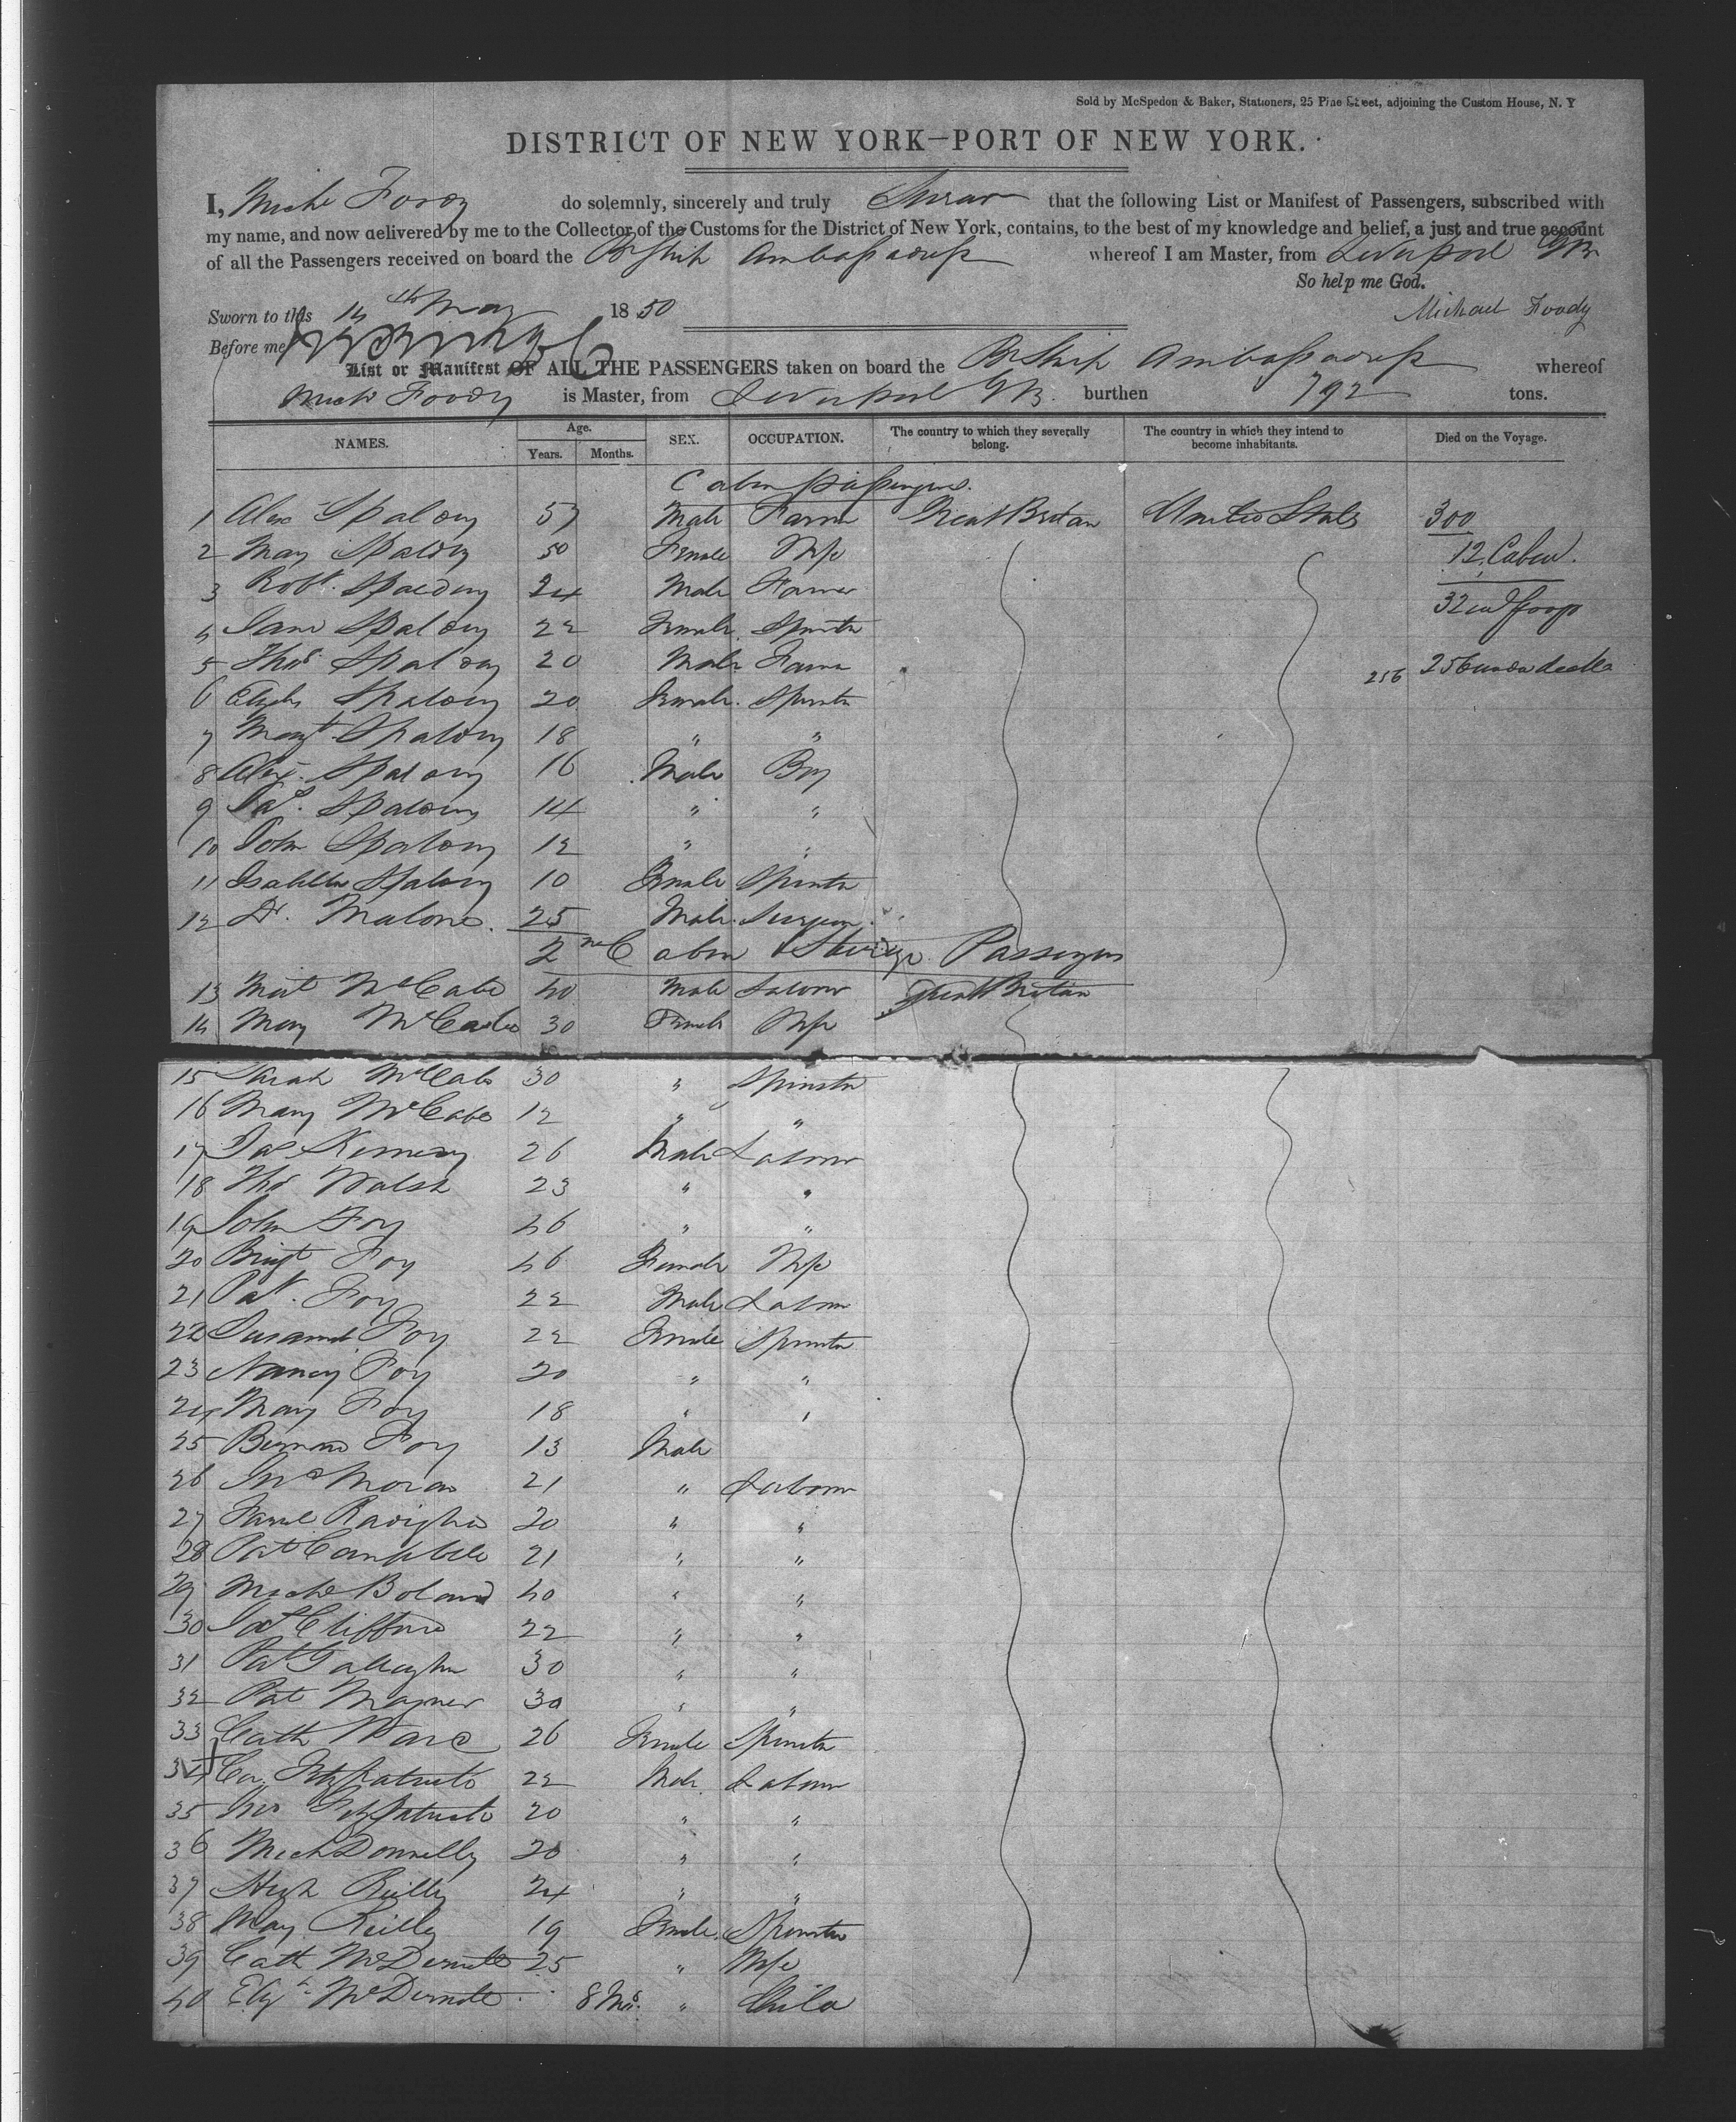 Sold by McSpedon & Baker, Stationers, 25 Pine Street, adjoining the Custom House, N. Y
DISTRICT OF NEW YORK—PORT OF NEW YORK.
I, Michl Foody do solemnly, sincerely and truly Swear that the following List or Manifest of Passengers, subscribed with
my name, and now delivered by me to the Collector of the Customs for the District of New York, contains, to the best of my knowledge and belief, a just and true account
of all the Passengers received on board the Br Ship Ambassadress whereof I am Master, from Liverpool GB
So help me God.
Sworn to this 14th May 1850 Michael Foody
Before me
List or Manifest OF ALL THE PASSENGERS taken on board the Br Ship Ambassadress whereof
Michl Foody is Master, from Liverpool GB. burthen 792 tons.
NAMES. Age. Years. Months. SEX. OCCUPATION. The country to which they severally belong. The country in which they intend to become inhabitants. Died on the Voyage.
Cabin passengers.
1 Alex Spalding 57 Male Farmer Great Britain United States 300
2 Mary Spalding 50 Female Wife 12 Cabin.
3 Robt. Spalding 24 Male Farmer 32
4 Jane Spalding 22 Female Spinster
5 Thos Spalding 20 Male Farmer 256 256 under deck
6 Spalding 20 Female Spinster
7 Margt Spalding 18 " "
8 Alex. Spalding 16 Male Boy
9 Jas. Spalding 14 " "
10 John Spalding 12 " "
11 Isabella Spalding 10 Female Spinster
12 Dr. Malone. 25 Male Surgeon
2nd Cabin & Steerage Passengers
13 McCabe 40 Male Labour Great Britain
14 Mary McCabe 30 Female Wife
15 Sarah McCabe 30 " Spinster
16 Mary McCabe 12 " "
17 Jas Kennedy 26 Male Labour
18 Thos Walsh 23 " "
19 John Foy 46 " "
20 Bridgt Foy 46 Female Wife
21 Pat. Foy 22 Male Labour
22 Susannah Foy 22 Female Spinster
23 Nancy Foy 20 " "
24 Mary Foy 18 " "
25 Bernard Foy 13 Male
26 Jno Moran 21 " Labour
27 20 " "
28 Pat Campbell 21 " "
29 Michl Boland 40 " "
30 Clifford 22 " "
31 Pat Gallagher 30 " "
32 Pat Magner 30 " "
33 Cath Ware 26 Female Spinster
34 Fitzpatrick 22 Male Labour
35 Fitzpatrick 20 " "
36 Mich Donnelly 20 " "
37 Hugh Reilly 24 " "
38 Mary Reilly 19 Female Spinster
39 Cath McDermott 25 " Wife
40 Elizh McDermott 8 Mos. " Child